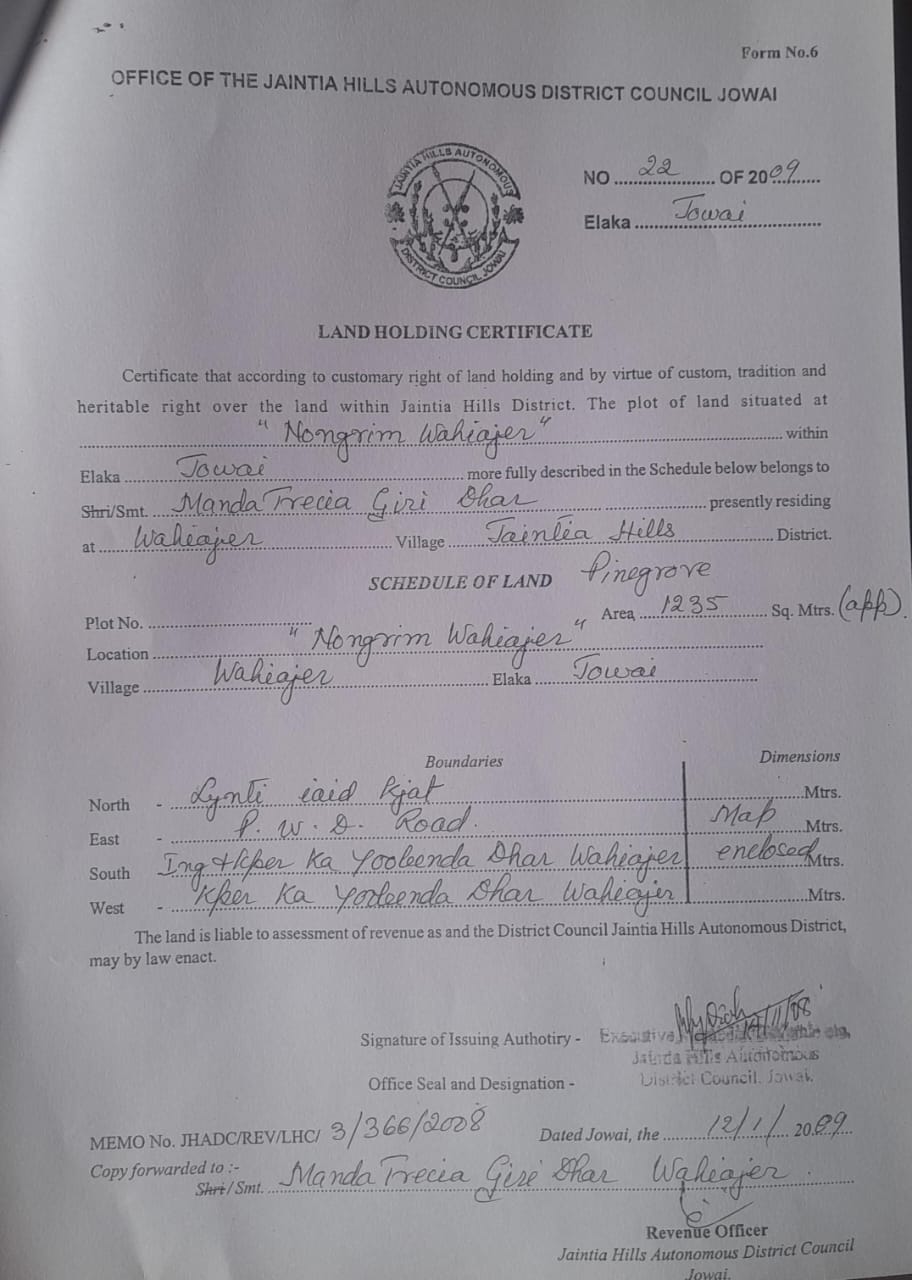 Form No.6
OFFICE OF THE JAINTIA HILLS AUTONOMOUS DISTRICT COUNCIL JOWAI
JAINTIA HILLS AUTONOMOUS
DISTRICT COUNCIL JOWAI
NO ..... 22 ..... OF 2009.....
Elaka ..... Jowai .....
LAND HOLDING CERTIFICATE
Certificate that according to customary right of land holding and by virtue of custom, tradition and
heritable right over the land within Jaintia Hills District. The plot of land situated at
..... "Nongrim Wahiajer" ..... within
Elaka ..... Jowai ..... more fully described in the Schedule below belongs to
Shri/Smt. .... Manda Trecia Giri Dhar ..... presently residing
at ..... Wahiajer ..... Village ..... Jaintia Hills ..... District.
SCHEDULE OF LAND Pinegrove
Plot No. ..... Area ..... 1235 ..... Sq. Mtrs. (app).
Location ..... "Nongrim Wahiajer" .....
Village ..... Wahiajer ..... Elaka ..... Jowai .....
Boundaries Dimensions
North - ..... Lynti iaid Kjat ..... Mtrs.
East - ..... P. W. D. Road. ..... Map ..... Mtrs.
South Ing + Kper Ka Yooleenda Dhar Wahiajer enclosed Mtrs.
West - ..... Kper Ka Yooleenda Dhar Wahiajer ..... Mtrs.
The land is liable to assessment of revenue as and the District Council Jaintia Hills Autonomous District,
may by law enact.
Signature of Issuing Authotiry - Executive
Jaintia Hills Autonomous
Office Seal and Designation - District Council. Jowai.
MEMO No. JHADC/REV/LHC/ 3/366/2008 Dated Jowai, the ..... 12/1/ ..... 2009....
Copy forwarded to :-
Shri/Smt. .... Manda Trecia Giri Dhar Wahiajer .....
Revenue Officer
Jaintia Hills Autonomous District Council
Jowai.